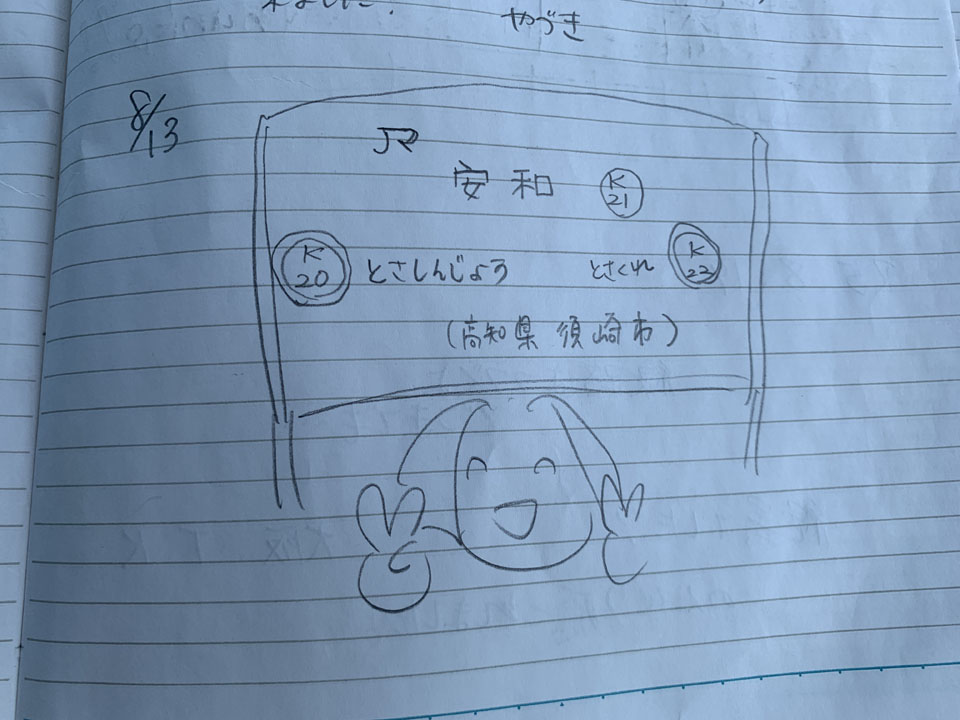 やづき
8/13
JR
安和 K21
K20 とさしんじょう とさくれ K22
(高知県 須崎市)